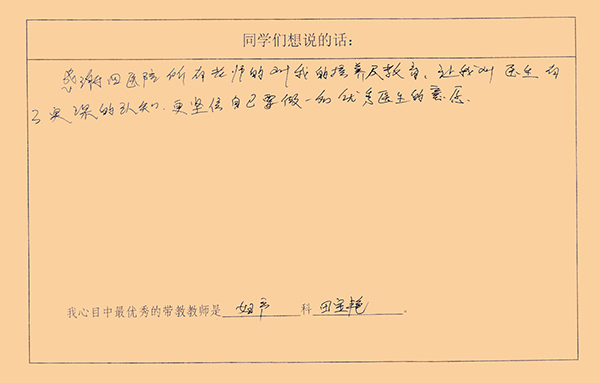 同学们想说的话：
感谢四医院所有老师的对我的培养及教育、让我对医生有
了更深的认知.更坚信自己要做一的优秀医生的意愿.
我心目中最优秀的带教教师是 妇产 科 田宝艳 。